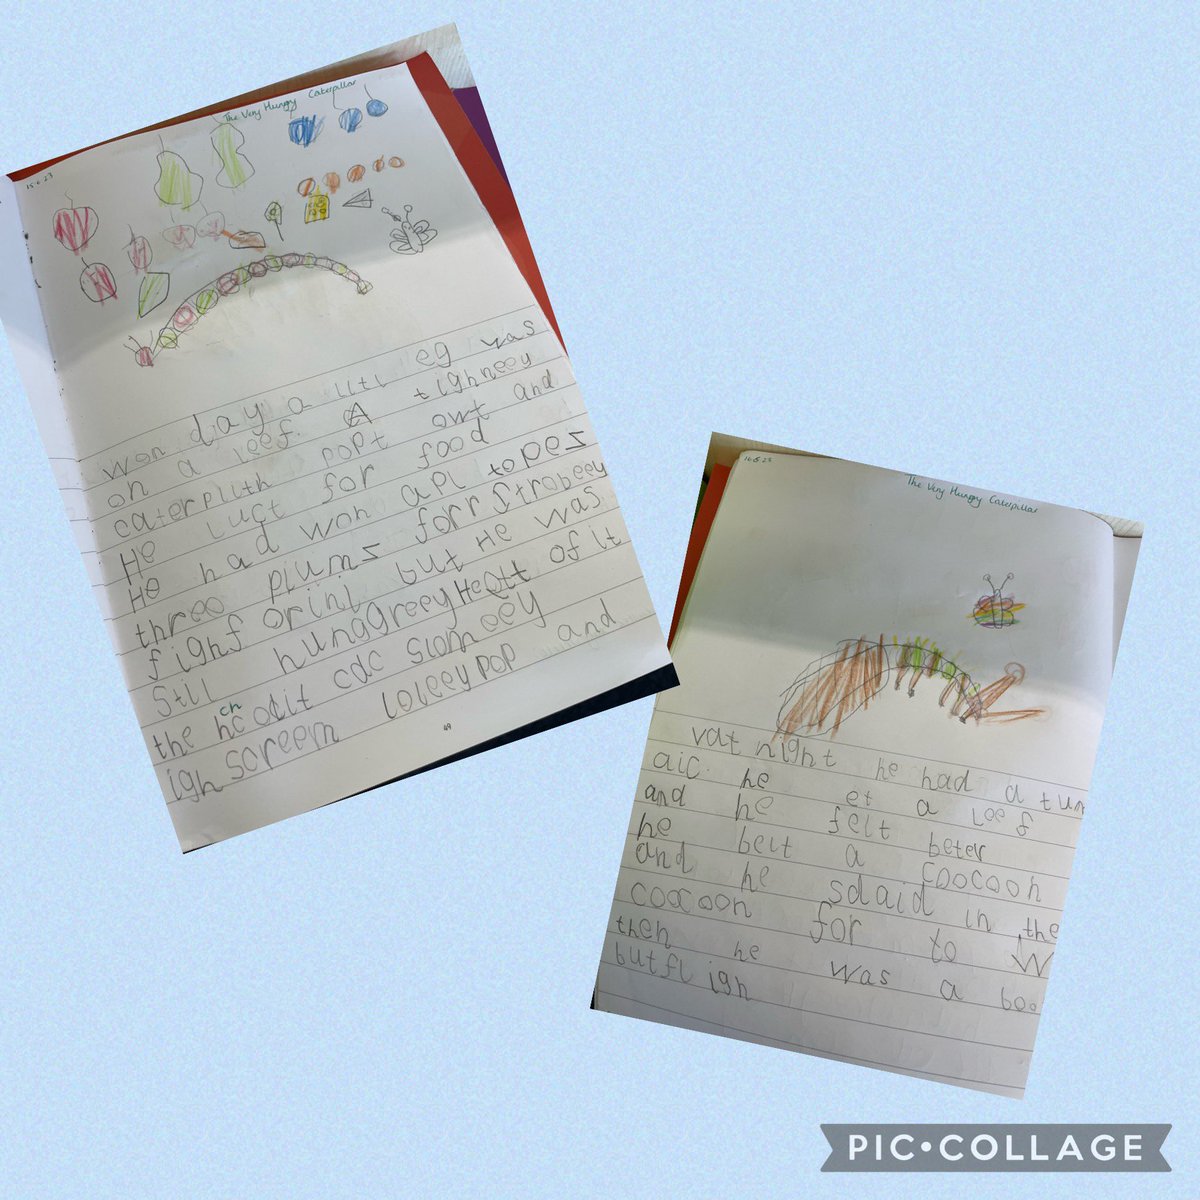 15.6.23
The Very Hungry Caterpillar
won day a litl eg was
on a leef. A tighneey
caterpiuth popt owt and
He luct for food
He had won apl to pes
three plums forr strobeey
fighf orinj but He was
still hungGreey He att of it
the ch hcoclit cac slomeey
igh screem loleeypop and
49
16.6.23
The Very Hungry Caterpillar
vat night he had a tum
aic. he et a leef
and he felt beter
he belt a coocoon
and he sdaid in the
coocoon for to w
then he was a boo
butfligh
PIC•COLLAGE